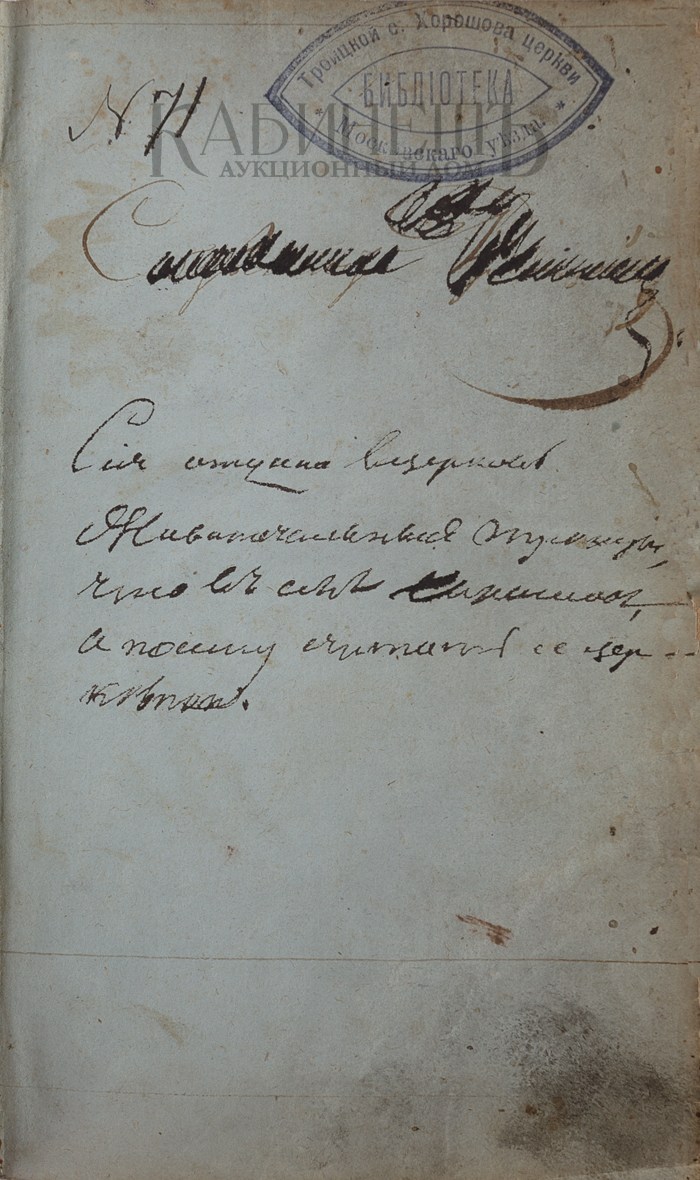 Троицкой с. Хорошова церкви
БИБЛІОТЕКА
* Московскаго уѣзда. *
N. 71
КАБИНЕТЪ
АУКЦИОННЫЙ ДОМ
Сія отдана въ церковь
Живоначальныя Троицы,
что въ селѣ
а посему считать ее цер--
ковною.